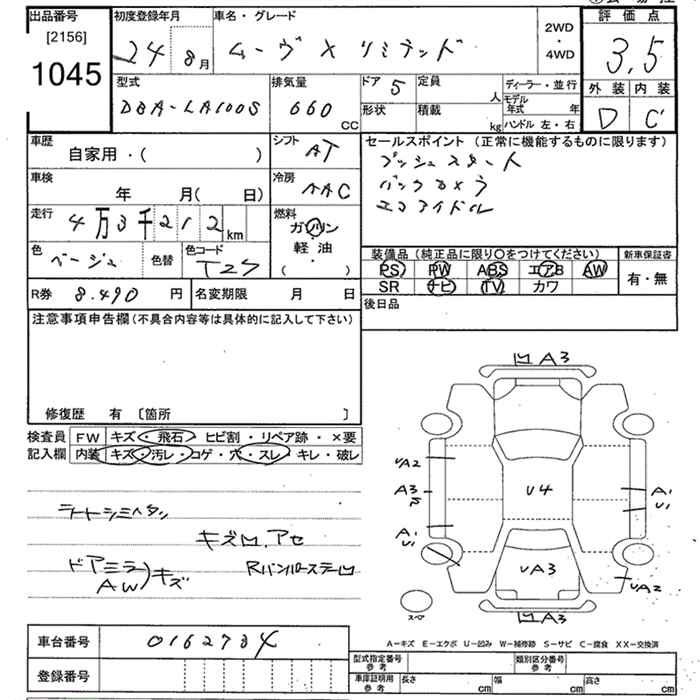 出品番号 初度登録年月 車名・グレード 2WD・4WD 評価点
[2156]
1045
24 8月 ムーヴ X リミテッド 3.5
型式 排気量 ドア 5 定員 人 ディーラー・並行 外装 内装
DBA-LA100S 660 CC 形状 積載 kg モデル年式 年 D C
ハンドル 左・右
車歴 シフト AT セールスポイント(正常に機能するものに限ります)
自家用・( ) プッシュスタート
車検 冷房 バックカメラ
年 月( 日) AAC エコアイドル
走行 4万3千212km 燃料
ガソリン
軽油
( )
色 ベージュ 色替 色コード T27
装備品(純正品に限り○をつけてください) 新車保証書
PS PW ABS エアB AW 有・無
SR ナビ TV カワ
R券 8.490 円 名変期限 月 日
後日品
注意事項申告欄(不具合内容等は具体的に記入して下さい)
修復歴 有 〔箇所 〕
検査員記入欄 FW キズ・飛石・ヒビ割・リペア跡・×要
内装 キズ・汚レ・コゲ・穴・スレ・キレ・破レ
ライトシミヘタン
キズ凹.アセ
ドアミラ
AW)キズ
凹A3
UA2
A3
A1
U1
U4
A1
U1
UA3
UA2
凹A3
スペア
車台番号 0162734
A－キズ E－エクボ U－凹み W－補修跡 S－サビ C－腐食 XX－交換済
登録番号
型式指定番号 参考 類別区分番号 参考
車庫証明用 参考 長さ cm 幅 cm 高さ cm